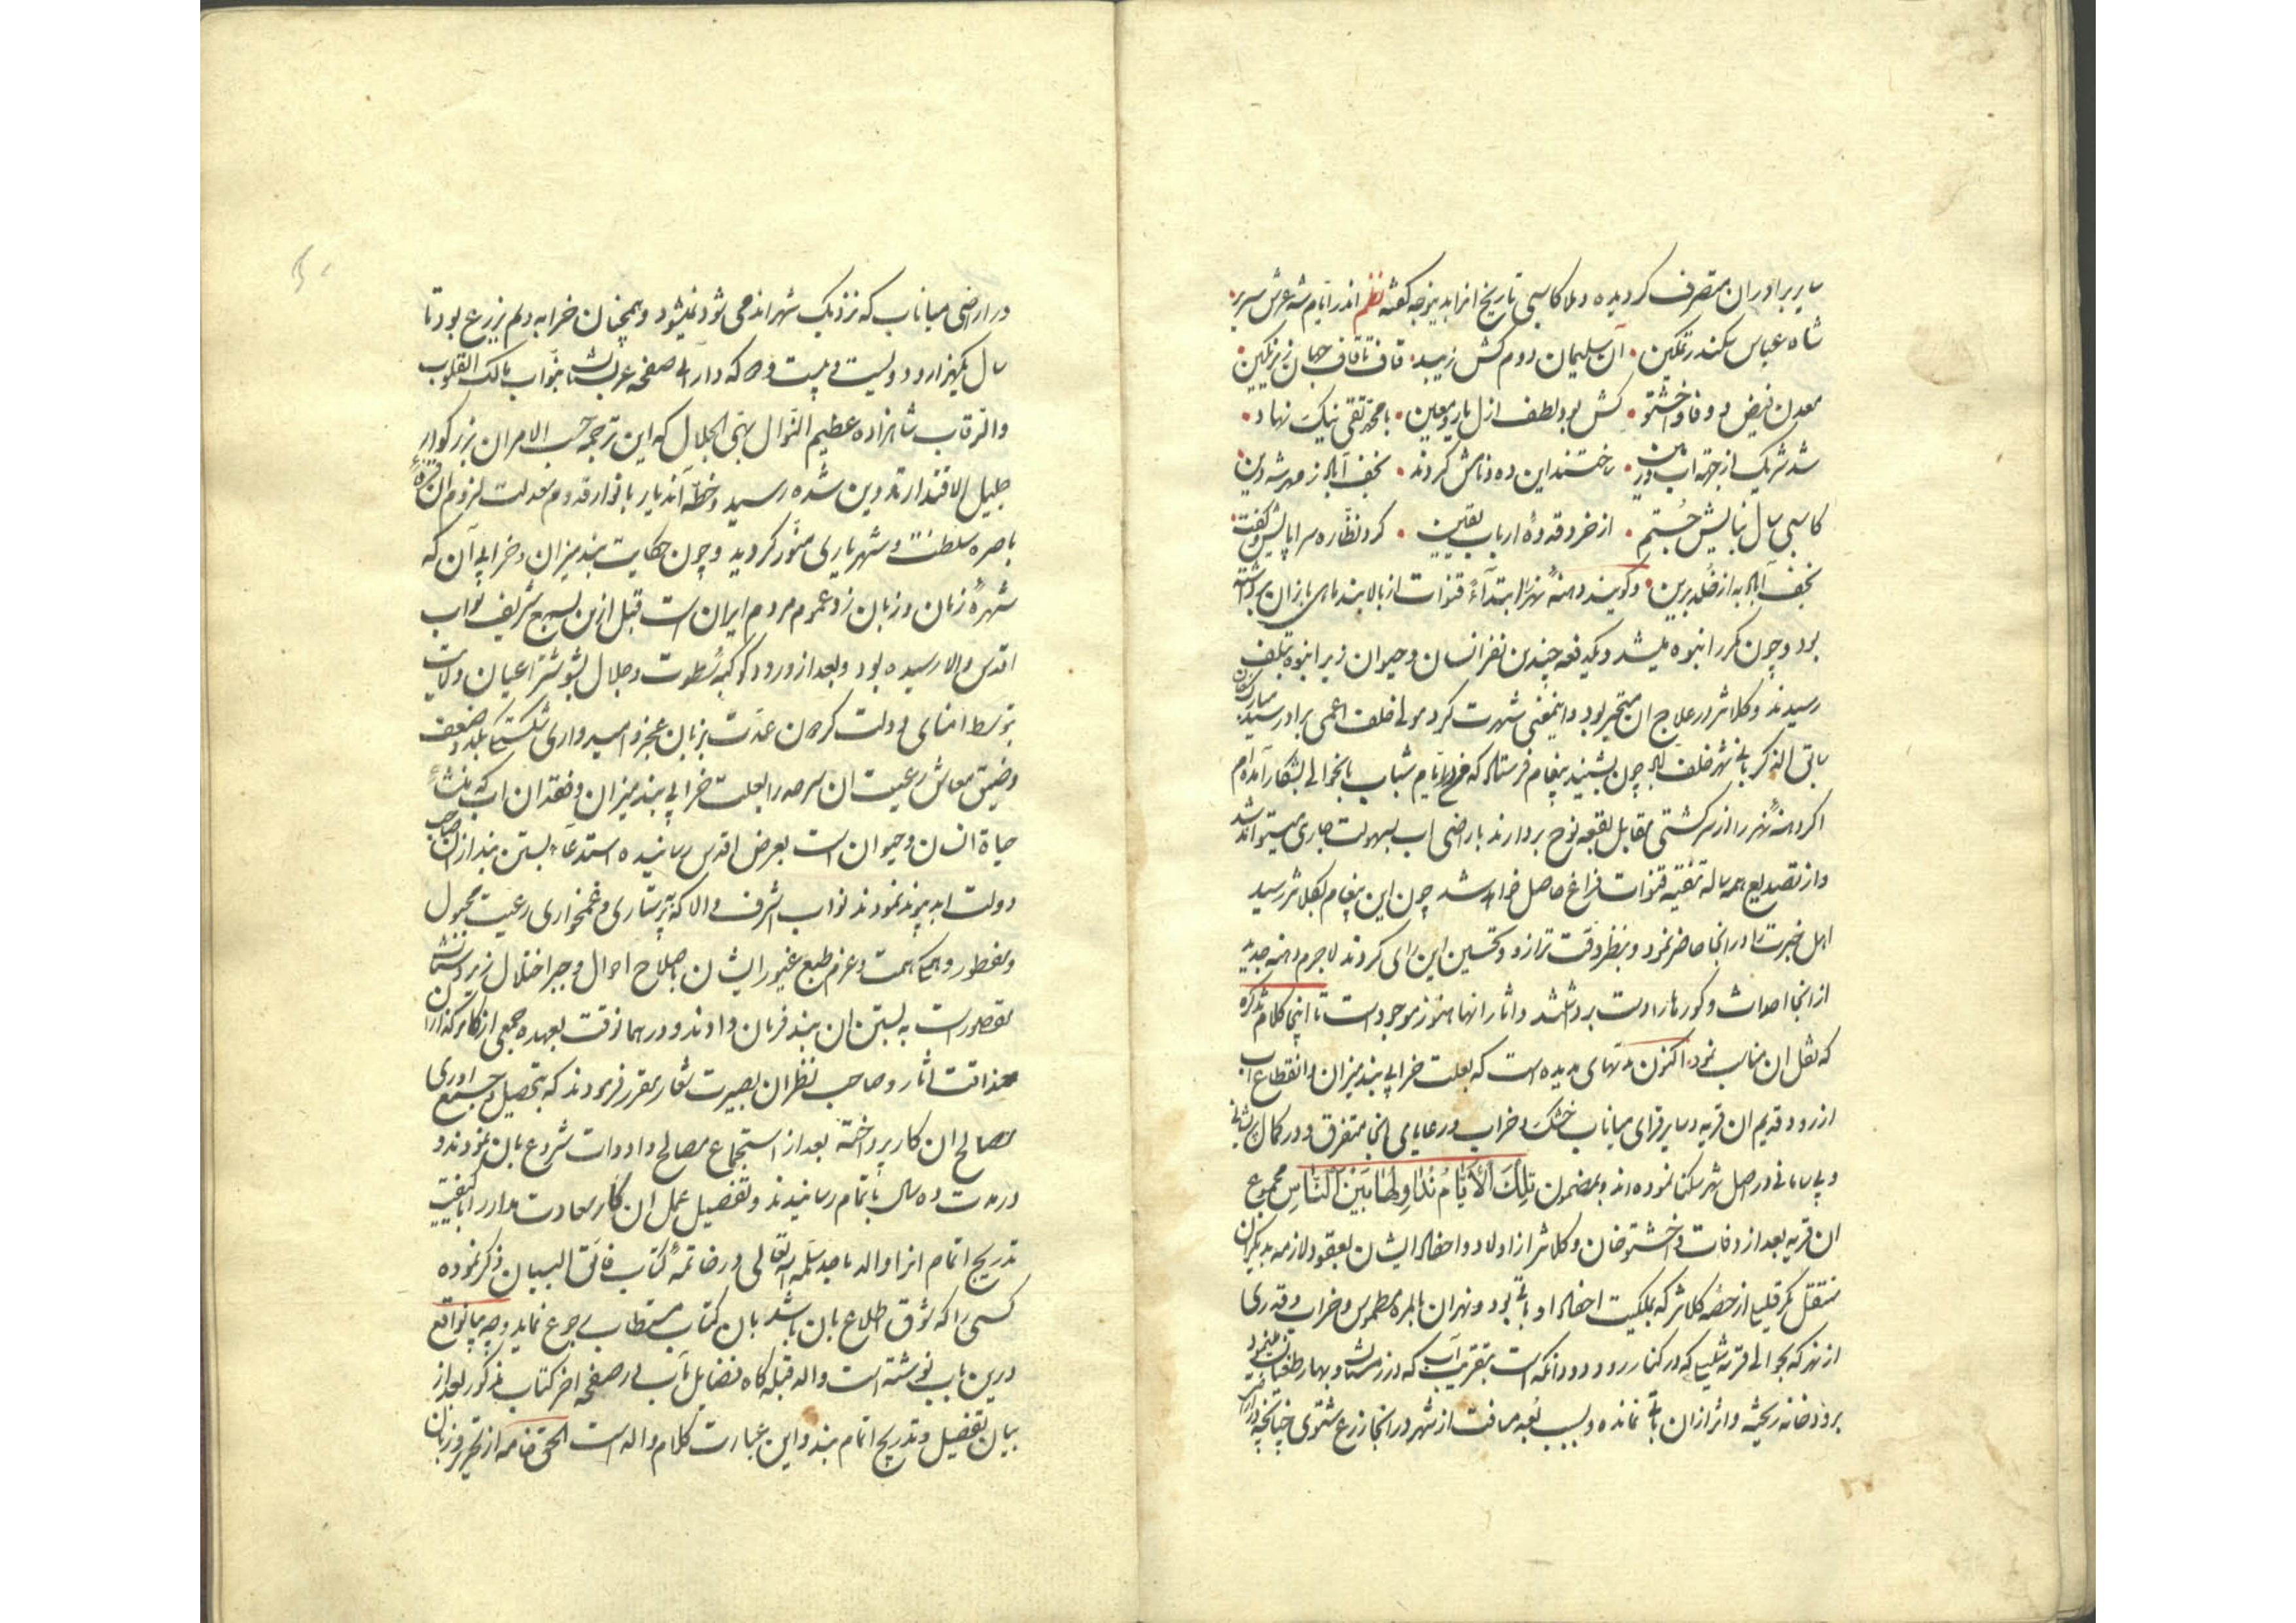 سایر برادران متصرف کردیده و ملا کاسبی تاریخ انرا بدینوجه کفته نظم اندر ایام شه عرش سریر
شاه عباس سکندر تمکین آن سلیمان دوم کش زیبد قاف تا قاف جهان زیر نکین
معدن فیض و وفا وخشتو کش بود لطف ازل یار و معین با محمد تقی نیک نهاد
شد شریک از جهة اب و زمین ساختند این ده و نامش کردند نجف آباد ز مهر شه دین
کاسبی سال بنایش جستم از خرد قدوهٔ ارباب یقین کرد نظاره سراپایش و کفت
نجف آباد به از خلد برین و کویند دهنهٔ نهر را ابتداءً قنوات از بالا بند ماهی بازان برداشته
بود و چون مکرر انبوه میشد و یکدفعه چندین نفر انسان و حیوان زیر انبوه تلف
رسیدند و کلانتر در علاج ان متحیر بود و اینمعنی شهرت کرد مولی خلف اعمی برادر سید مبارک خان
سابق الذکر بانی شهر خلف آباد چون بشنید پیغام فرستاد که من در ایام شباب بانحوالی بشکار آمده‌ام
اکر دهنهٔ نهر را از سر کشتی مقابل بقعه نوح بردارند باراضی اب بسهولت جاری میتواند شد
و از تصدیع همه ساله تنقیه قنوات فراغ حاصل خواهد شد چون این پیغام بکلانتر رسید
اهل خبرت را در انجا حاضر نمود و بنظر دقت ترازو و تحسین این رای کردند لاجرم دهنه جدید
از انجا احداث و کورها را دست برداشتند و اثار انها هنوز موجود است تا اینجا کلام تذکره
که نقل ان مناسب نمود اکنون مدتهای مدیده است که بعلت خرابی بند میزان و انقطاع اب
از رود قدیم ان قریه و سایر قرای میاناب خشک و خراب و رعایای انجا متفرق و در کمال پریشانی
و بی سامانی در اصل شهر سکنا نموده‌اند و بمضمون تِلْكَ الْأَيَّامُ نُدَاوِلُهَا بَيْنَ النَّاسِ مجموع
ان قریه بعد از وفات وخشتو خان و کلانتر از اولاد و احفاد ایشان بعقود لازمه بدیکران
منتقل مکر قلیلی از حصه کلانتر که بملکیت احفاد او باقی بود و نهر ان بالمره مطموس و خراب و قدری
از نهر که بحوالی قریه شلیلی که در کنار رود دودانکه است بتقریب آب که در زمستان و بهار طغیان مینمود
برودخانه ریخته و اثر از ان باقی نمانده و بسبب بعد مسافت از شهر در انجا زرع شتوی چنانچه
در اراضی میاناب که نزدیک شهر اند می شود نمیشود و همچنان خرابه و لم یزرع بود تا
سال یکهزار و دویست و بیست و که دارائی صفحه عربستان بنواب مالک القلوب
و الرقاب شاهزاده عظیم النوال بهی الجلال که این ترجمه حسب الامر ان بزرکوار
جلیل الاقتدار تدوین شده رسید و خطه آندیار بانوار قدوم معدلت لزوم ان قره
باصره سلطنت و شهریاری منور کردید و چون حکایت بند میزان و خرابی آن که
شهرهٔ زمان و زبان زد عموم مردم ایران است قبل ازین بسمع شریف نواب
اقدس والا رسیده بود و بعد از ورود کوکبهٔ سطوت و جلال بشوشتر اعیان ولایت
بتوسط امنای دولت کردون عدت بزبان عجز و امیدواری شکستکی بلد و ضعف
و ضیق معاش رعیت ان سرحد را بعلت خرابی بند میزان و فقدان اب که منشاء
حیاة انسان و حیوان است بعرض اقدس رسانیده استدعاء بستن بند از ان صاحب
دولت ابد پیوند نمودند نواب اشرف والا که بپرستاری و غمخواری رعیت مجبول
و مفطور و همکی همت و عزم طبع غیور ایشان باصلاح احوال و جبر اختلال زیردستان
مقصور است به بستن ان بند فرمان دادند و در همانوقت بعهده جمعی از کارکذاران
حذاقت اثار و صاحب نظران بصیرت شعار مقرر فرمودند که بتحصیل و جمع اوری
مصالح ان کار پرداخته بعد از استجماع مصالح و ادوات شروع بان نمودند و
در مدت ده سال باتمام رسانیدند و تفصیل عمل ان کار سعادت مدار را با کیفیت
تدریج اتمام انرا والد ماجد سلمه الله تعالی در خاتمهٔ کتاب فائق البیان ذکر نموده
کسی را که شوق اطلاع بان باشد بان کتاب مستطاب رجوع نماید
درین باب نوشته است والد قبله کاه فضایل مآب در صفحه اخر کتاب مذکور بعد از
بیان تفصیل و تدریج اتمام بند و این عبارت کلام والد است الحق خامه از تحریر و زبان